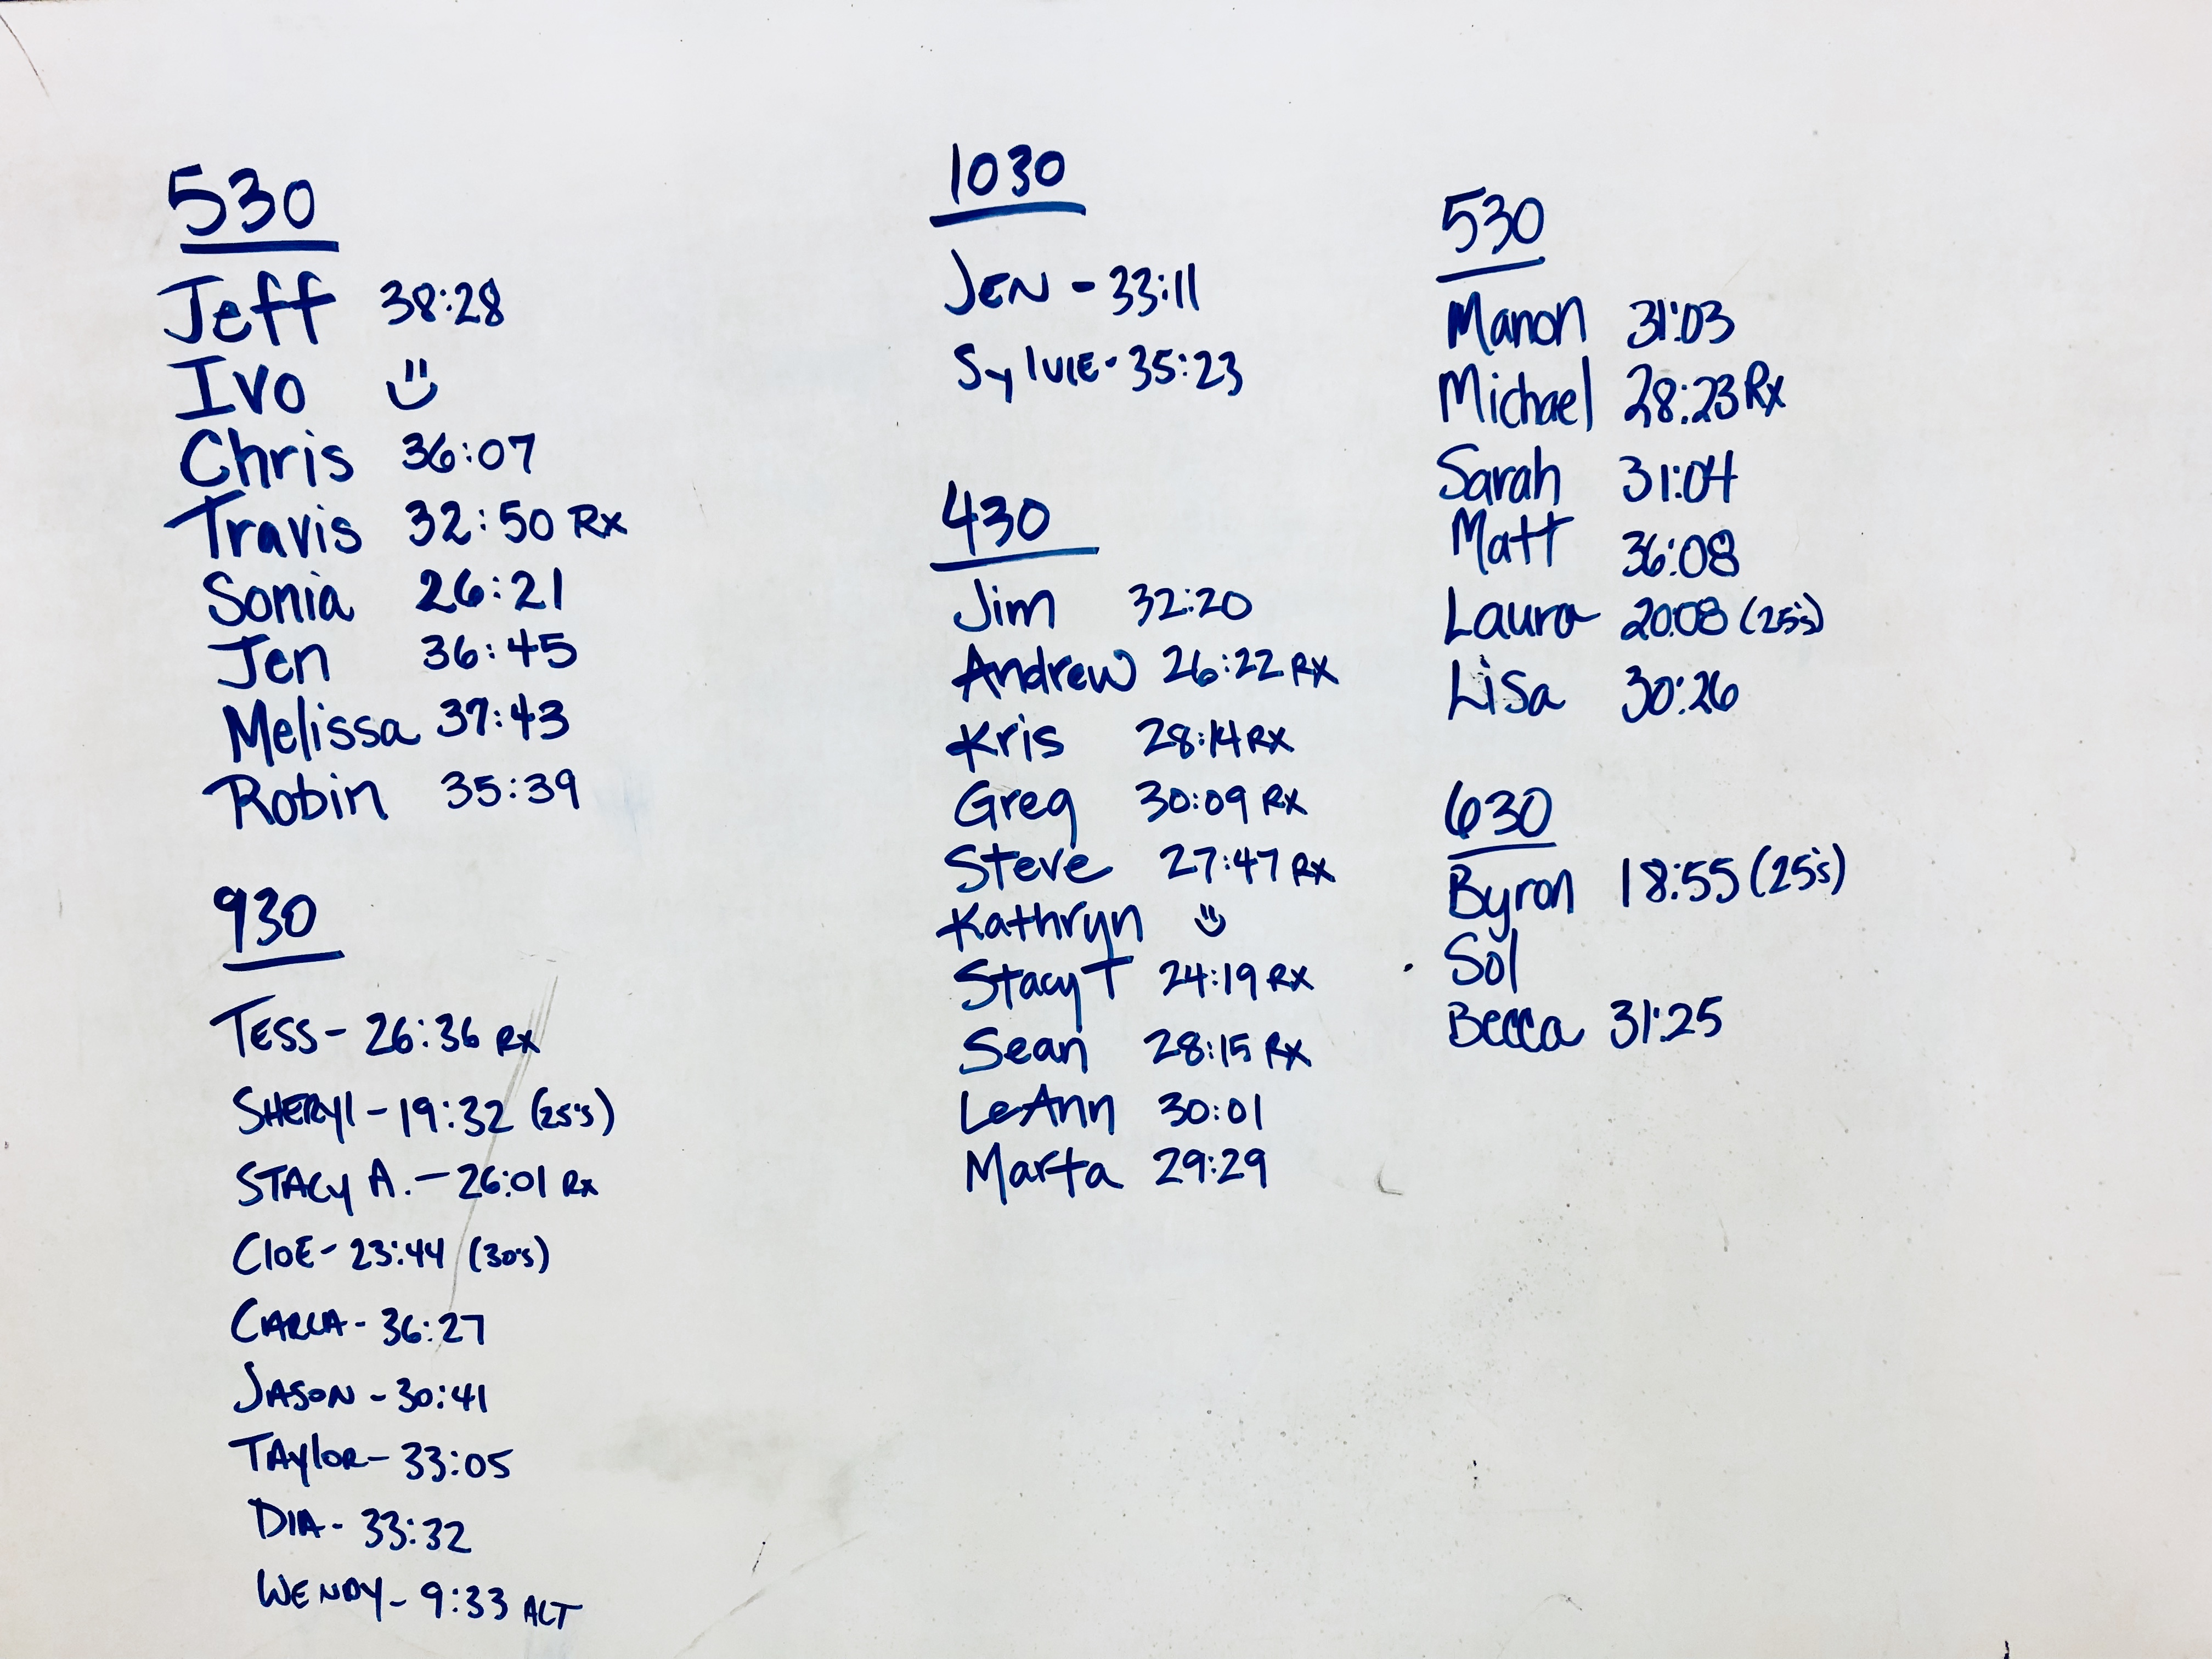 530
Jeff 38:28
Ivo
Chris 36:07
Travis 32:50 Rx
Sonia 26:21
Jen 36:45
Melissa 37:43
Robin 35:39
930
TESS - 26:36 RX
SHERYl - 19:32 (25's)
STACY A. - 26:01 Rx
CloE - 23:44 (30's)
CARLA - 36:27
JASON - 30:41
TAYloR - 33:05
DIA - 33:32
WENDY - 9:33 ALT
1030
JEN - 33:11
SylVIE - 35:23
430
Jim 32:20
Andrew 26:22 RX
Kris 28:14 RX
Greg 30:09 RX
Steve 27:47 RX
Kathryn
Stacy T 24:19 RX
Sean 28:15 RX
LeAnn 30:01
Marta 29:29
530
Manon 31:03
Michael 28:23 Rx
Sarah 31:04
Matt 36:08
Laura 20:08 (25's)
Lisa 30:26
630
Byron 18:55 (25's)
Sol
Becca 31:25